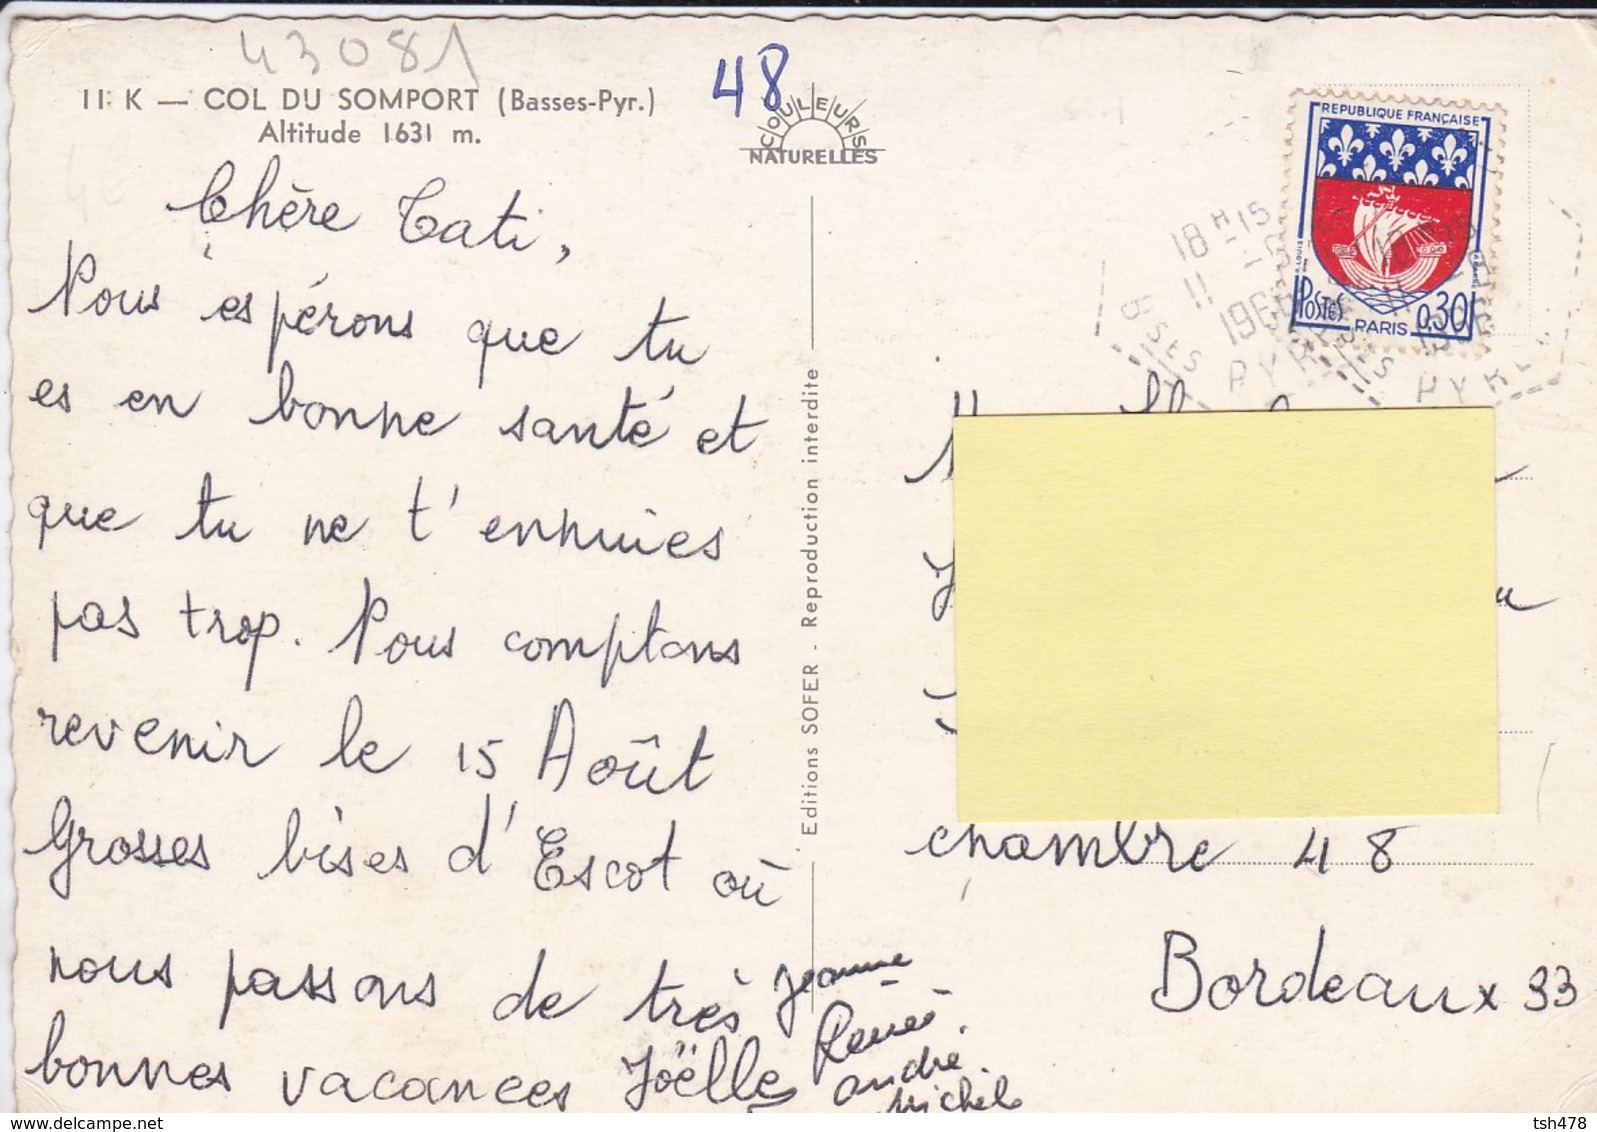 43081
48
II K — COL DU SOMPORT (Basses-Pyr.)
Altitude 1631 m.
COULEURS
NATURELLES
REPUBLIQUE FRANÇAISE
POSTES
PARIS
0,30
18 H 15
11
1966
BSES PYR
Chère Tati,
Nous espérons que tu
es en bonne santé et
que tu ne t'ennuies
pas trop. Nous comptons
revenir le 15 Août
Grosses bises d'Escot où
nous passons de très
bonnes vacances Joëlle
Jeanne
Renée
André
Michel
Editions SOFER - Reproduction interdite
chambre 48
Bordeaux 33
delcampe.net
tsh478